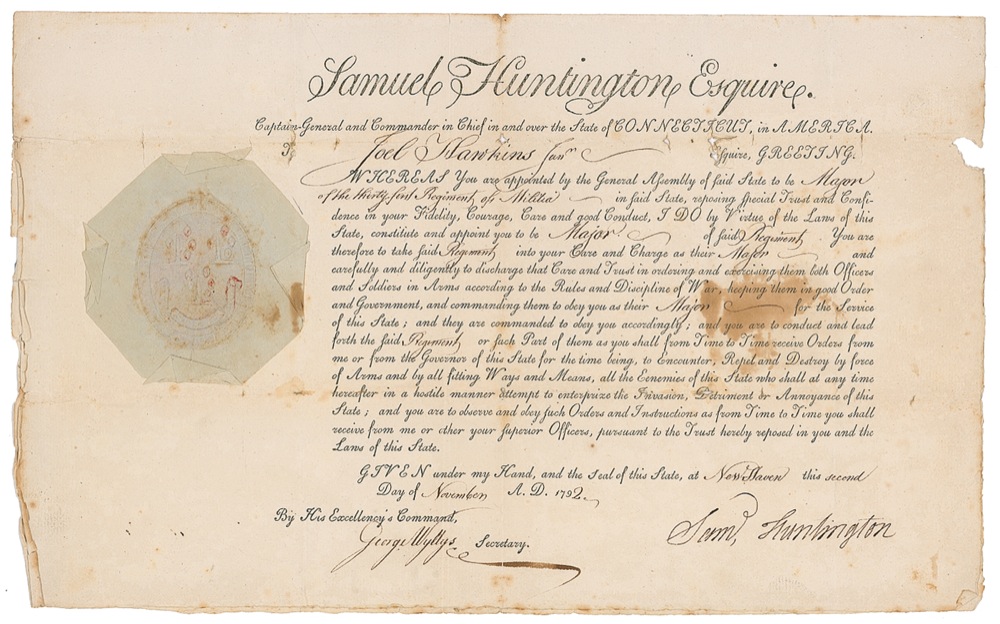 Samuel Huntington Esquire.
Captain-General and Commander in Chief in and over the State of CONNECTICUT, in AMERICA.
To Joel Hawkins Junr Esquire, GREETING.
WHEREAS You are appointed by the General Assembly of said State to be Major
of the thirty first Regiment of Militia in said State, reposing special Trust and Confi-
dence in your Fidelity, Courage, Care and good Conduct, I DO by Virtue of the Laws of this
State, constitute and appoint you to be Major of said Regiment You are
therefore to take said Regiment into your Care and Charge as their Major and
carefully and diligently to discharge that Care and Trust in ordering and exercising them both Officers
and Soldiers in Arms according to the Rules and Discipline of War, keeping them in good Order
and Government, and commanding them to obey you as their Major for the Service
of this State; and they are commanded to obey you accordingly; and you are to conduct and lead
forth the said Regiment or such Part of them as you shall from Time to Time receive Orders from
me or from the Governor of this State for the time being, to Encounter, Repel and Destroy by force
of Arms and by all fitting Ways and Means, all the Eenemies of this State who shall at any time
hereafter in a hostile manner attempt to enterprize the Invasion, Detriment or Annoyance of this
State; and you are to observe and obey such Orders and Instructions as from Time to Time you shall
receive from me or other your superior Officers, pursuant to the Trust hereby reposed in you and the
Laws of this State.
GIVEN under my Hand, and the seal of this State, at New Haven this second
Day of November A. D. 1792.
By His Excellency's Command,
George Wyllys Secretary.
Saml, Huntington